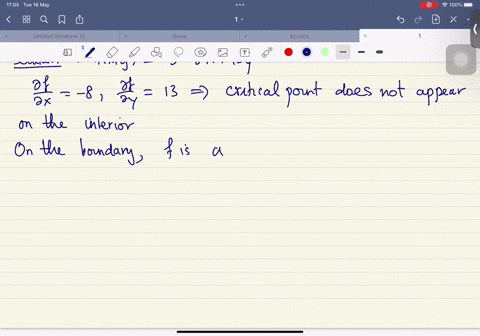 17:05 Tue 16 May
100%
1
Untitled Notebook (1)
Home
Scratch
1
∂f/∂x = -8, ∂f/∂y = 13 ⇒ critical point does not appear
on the interior
On the boundary, f is a